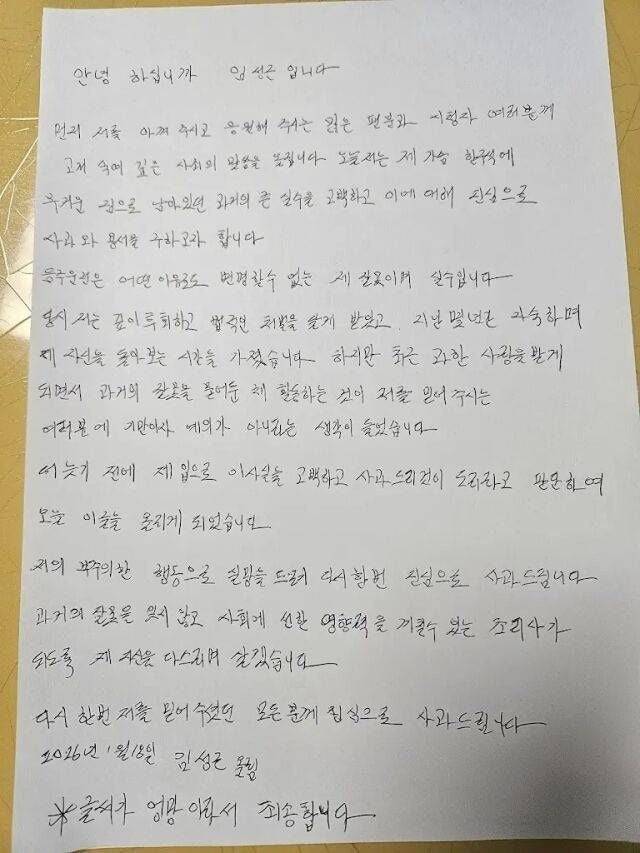 안녕 하십니까 임성근 입니다
먼저 저를 아껴 주시고 응원해 주시는 많은 팬분과 시청자 여러분께
고개 숙여 깊은 사죄의 말씀을 올립니다 오늘 저는 제 가슴 한구석에
무거운 짐으로 남아있던 과거의 큰 실수를 고백하고 이에 대해 진심으로
사과와 용서를 구하고자 합니다
음주운전은 어떤 이유로도 변명할수 없는 제 잘못이며 실수입니다
당시 저는 깊이후회하고 법적인 처벌을 달게 받았고 지난 몇년간 자숙하며
제 자신을 돌아보는 시간을 가졌습니다 하지만 최근 과한 사랑을 받게
되면서 과거의 잘못을 묻어둔 채 활동하는 것이 저를 믿어 주시는
여러분에 기만이자 예의가 아니라는 생각이 들었습니다
더 늦기 전에 제입으로 이사실을 고백하고 사과드리것이 도리라고 판단하여
오늘 이글을 올리게 되었습니다
저의 부주의한 행동으로 실망을 드려 다시한번 진심으로 사과드립니다
과거의 잘못을 잊지 않고 사회에 선한 영향력을 끼칠수 있는 조리사가
되도록 제 자신을 다스리며 살겠습니다
다시 한번 저를 믿어 주셨던 모든분께 진심으로 사과드립니다
2026년 1월18일 김성근 올림
※글씨가 엉망이라서 죄송합니다